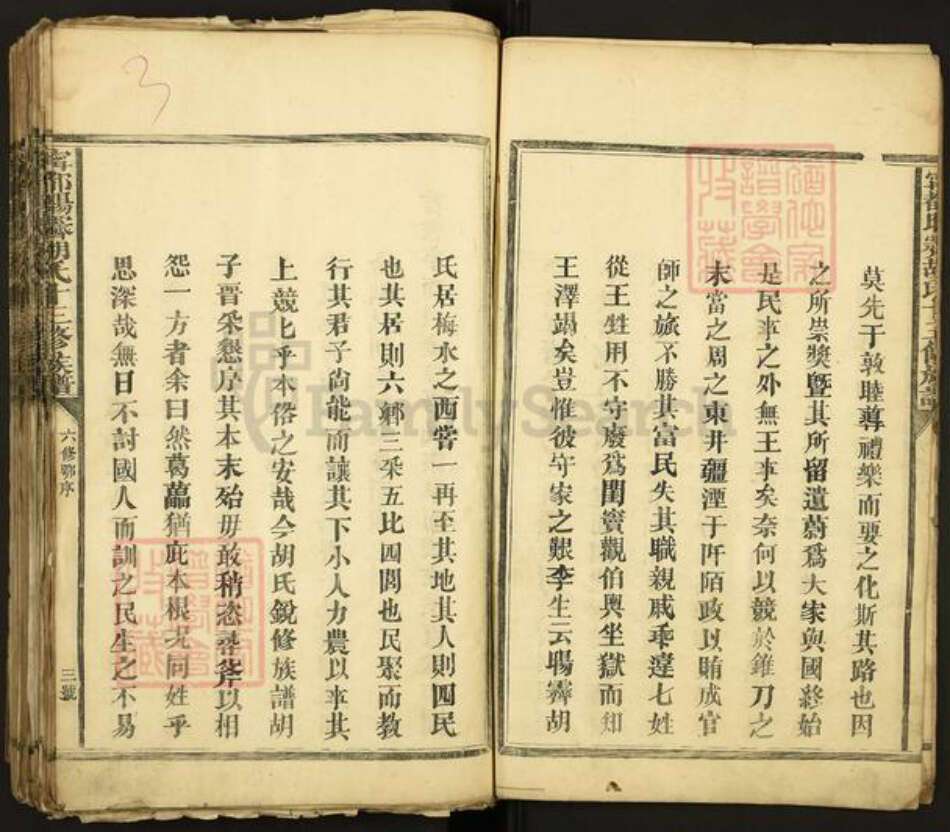 莫先于敦睦蕁禮樂而要之化斯其路也因
之所崇獎暨其所留遺蔚爲大家與國終始
是民事之外無王事矣奈何以競於錐刀之
末當之周之東井疆湮于阡陌政以賄成官
師之旅不勝其富民失其職親戚乖違七姓
從王牲用不守廢爲閨竇觀伯輿坐獄而知
王澤竭矣豈惟彼守家之艱李生云暘霽胡
氏居梅水之西甞一再至其地其人則四民
也其居則六鄉三采五比四閭也民聚而教
行其君子尚能而讓其下小人力農以事其
上競匕乎本俗之安哉今胡氏銳修族譜胡
子晋采懇序其本末殆毋敢稍恣尋斧以相
怨一方者余曰然葛藟猶庇本根况同姓乎
思深哉無日不討國人而訓之民生之不易
六修鄂序
三號
3
FamilySearch